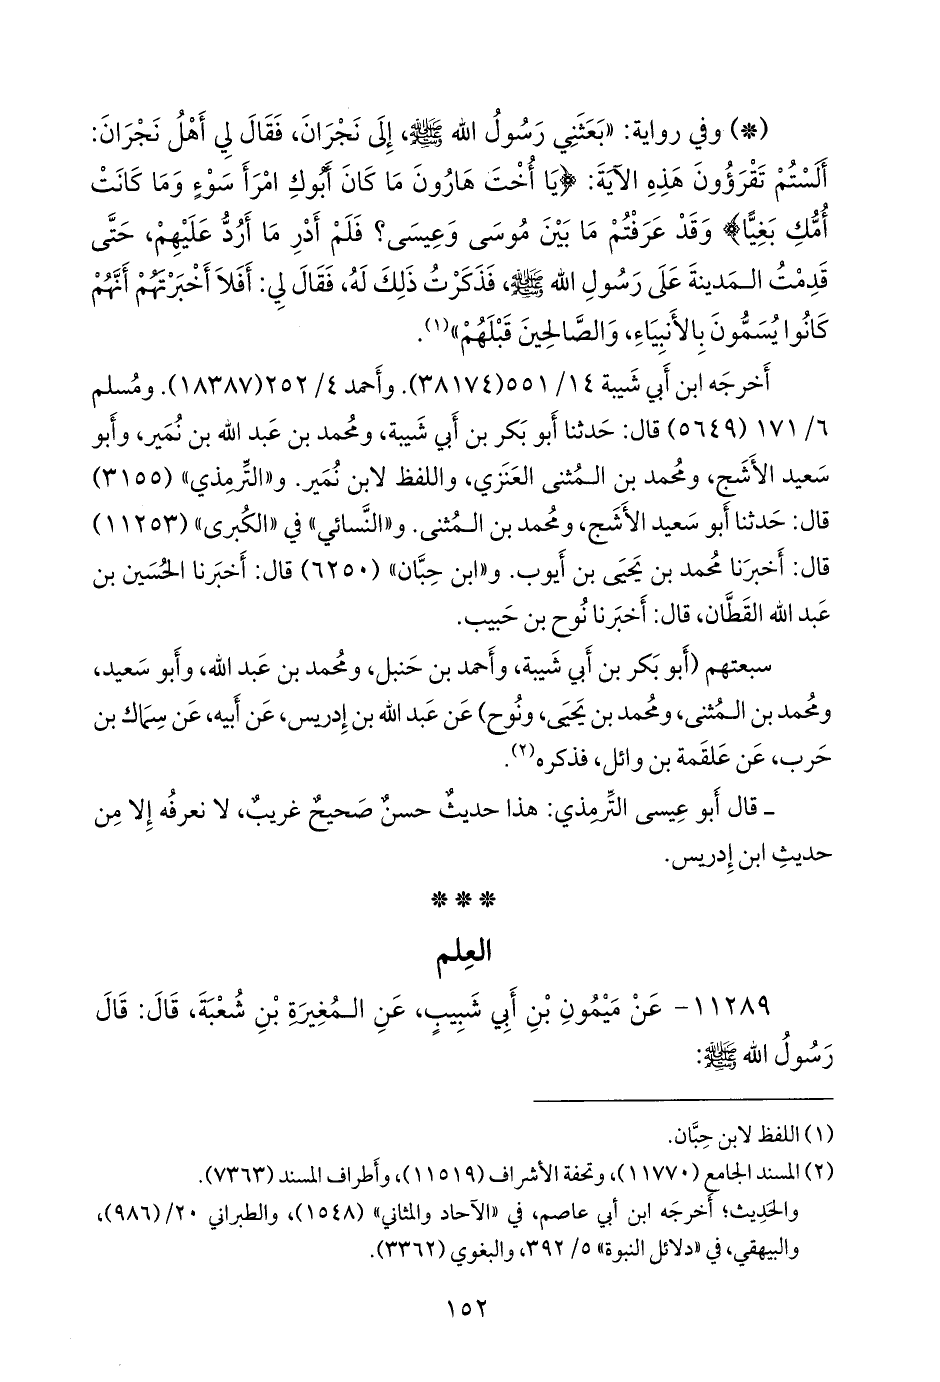 (❋) وفي رواية: «بَعَثَنِي رَسُولُ الله ﷺ، إِلَى نَجْرَانَ، فَقَالَ لِي أَهْلُ نَجْرَانَ:
أَلَسْتُمْ تَقْرَؤُونَ هَذِهِ الآيَةَ: ﴿يَا أُخْتَ هَارُونَ مَا كَانَ أَبُوكِ امْرَأَ سَوْءٍ وَمَا كَانَتْ
أُمُّكِ بَغِيًّا﴾ وَقَدْ عَرَفْتُمْ مَا بَيْنَ مُوسَى وَعِيسَى؟ فَلَمْ أَدْرِ مَا أَرُدُّ عَلَيْهِمْ، حَتَّى
قَدِمْتُ الـمَدينةَ عَلَى رَسُولِ الله ﷺ، فَذَكَرْتُ ذَلِكَ لَهُ، فَقَالَ لِي: أَفَلاَ أَخْبَرْتَهُمْ أَنَّهُمْ
كَانُوا يُسَمُّونَ بِالأَنبِيَاءِ، وَالصَّالِحِينَ قَبْلَهُمْ»(١).
أَخرجَه ابن أبي شَيبة ١٤/ ٥٥١(٣٨١٧٤). وأَحمد ٤/ ٢٥٢(١٨٣٨٧). ومُسلم
٦/ ١٧١ (٥٦٤٩) قال: حَدثنا أَبو بَكر بن أَبي شَيبة، ومُحمد بن عَبد الله بن نُمَير، وأَبو
سَعيد الأَشَج، ومُحمد بن الـمُثنى العَنَزي، واللفظ لابن نُمَير. و«التِّرمِذي» (٣١٥٥)
قال: حَدثنا أَبو سَعيد الأَشج، ومُحمد بن الـمُثنى. و«النَّسائي» في «الكُبرى» (١١٢٥٣)
قال: أَخبرَنا مُحمد بن يَحيَى بن أَيوب. و«ابن حِبَّان» (٦٢٥٠) قال: أَخبَرنا الحُسَين بن
عَبد الله القَطَّان، قال: أَخبَرنا نُوح بن حَبيب.
سبعتهم (أَبو بَكر بن أَبي شَيبة، وأَحمد بن حَنبل، ومُحمد بن عَبد الله، وأَبو سَعيد،
ومُحمد بن الـمُثنى، ومُحمد بن يَحيَى، ونُوح) عَن عَبد الله بن إِدريس، عَن أَبيه، عَن سِمَاك بن
حَرب، عَن عَلقَمة بن وائل، فذكره(٢).
ـ قال أَبو عِيسى التِّرمِذي: هذا حديثٌ حسنٌ صَحيحٌ غريبٌ، لا نعرفُه إِلا مِن
حديثِ ابن إِدريس.
❋ ❋ ❋
العِلم
١١٢٨٩- عَنْ مَيْمُونِ بْنِ أَبِي شَبِيبٍ، عَنِ الـمُغِيرَةِ بْنِ شُعْبَةَ، قَالَ: قَالَ
رَسُولُ الله ﷺ:
(١) اللفظ لابن حِبَّان.
(٢) المسند الجامع (١١٧٧٠)، وتحفة الأشراف (١١٥١٩)، وأَطراف المسند (٧٣٦٣).
والحَدِيث؛ أَخرجَه ابن أبي عاصم، في «الآحاد والمثاني» (١٥٤٨)، والطبراني ٢٠/(٩٨٦)،
والبيهقي، في «دلائل النبوة» ٥/ ٣٩٢، والبغوي (٣٣٦٢).
١٥٢